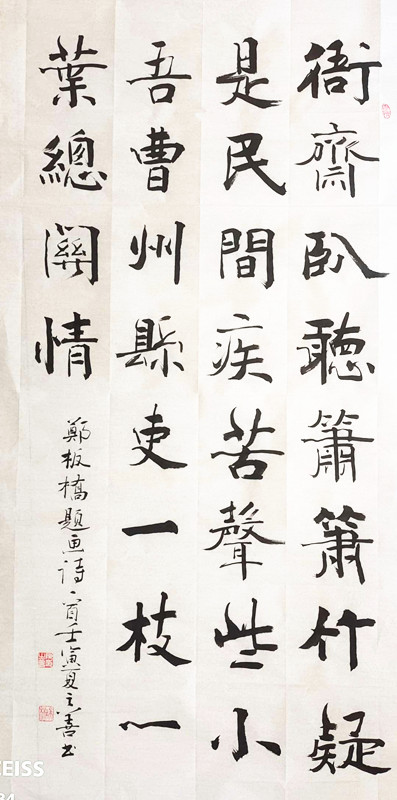 衙齋卧聽簫簫竹疑
是民間疾苦聲些小
吾曹州縣吏一枝一
葉總關情
鄭板橋題画诗一首壬寅夏之善书
EISS